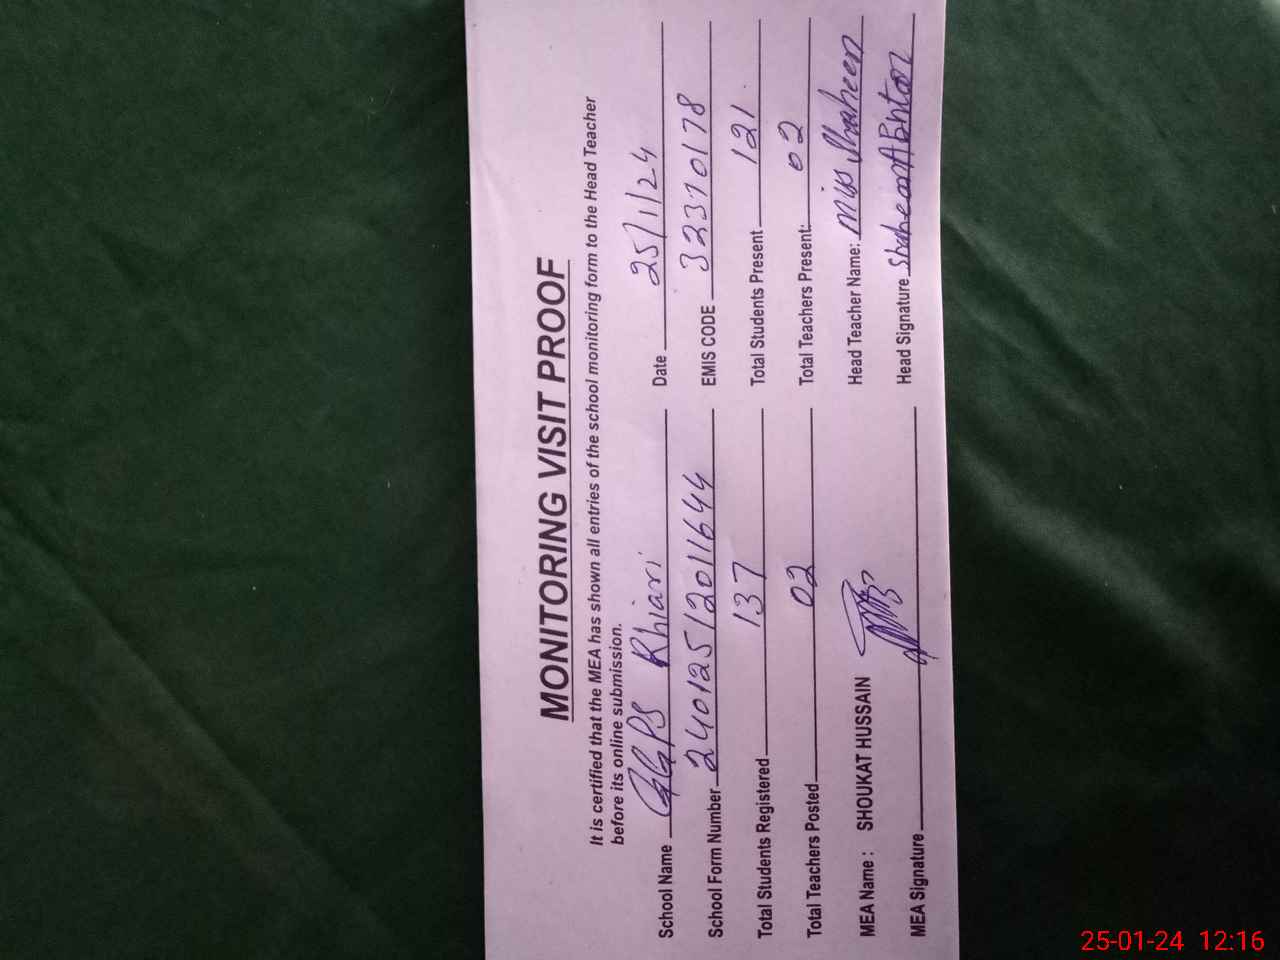 MONITORING VISIT PROOF
It is certified that the MEA has shown all entries of the school monitoring form to the Head Teacher
before its online submission.
School Name GGPS Rhiari Date 25/1/24
School Form Number 240125120111644 EMIS CODE 32370178
Total Students Registered 137 Total Students Present 121
Total Teachers Posted 02 Total Teachers Present: 02
MEA Name : SHOUKAT HUSSAIN Head Teacher Name: Miss Shaheen
MEA Signature Head Signature Shaheen
25-01-24 12:16